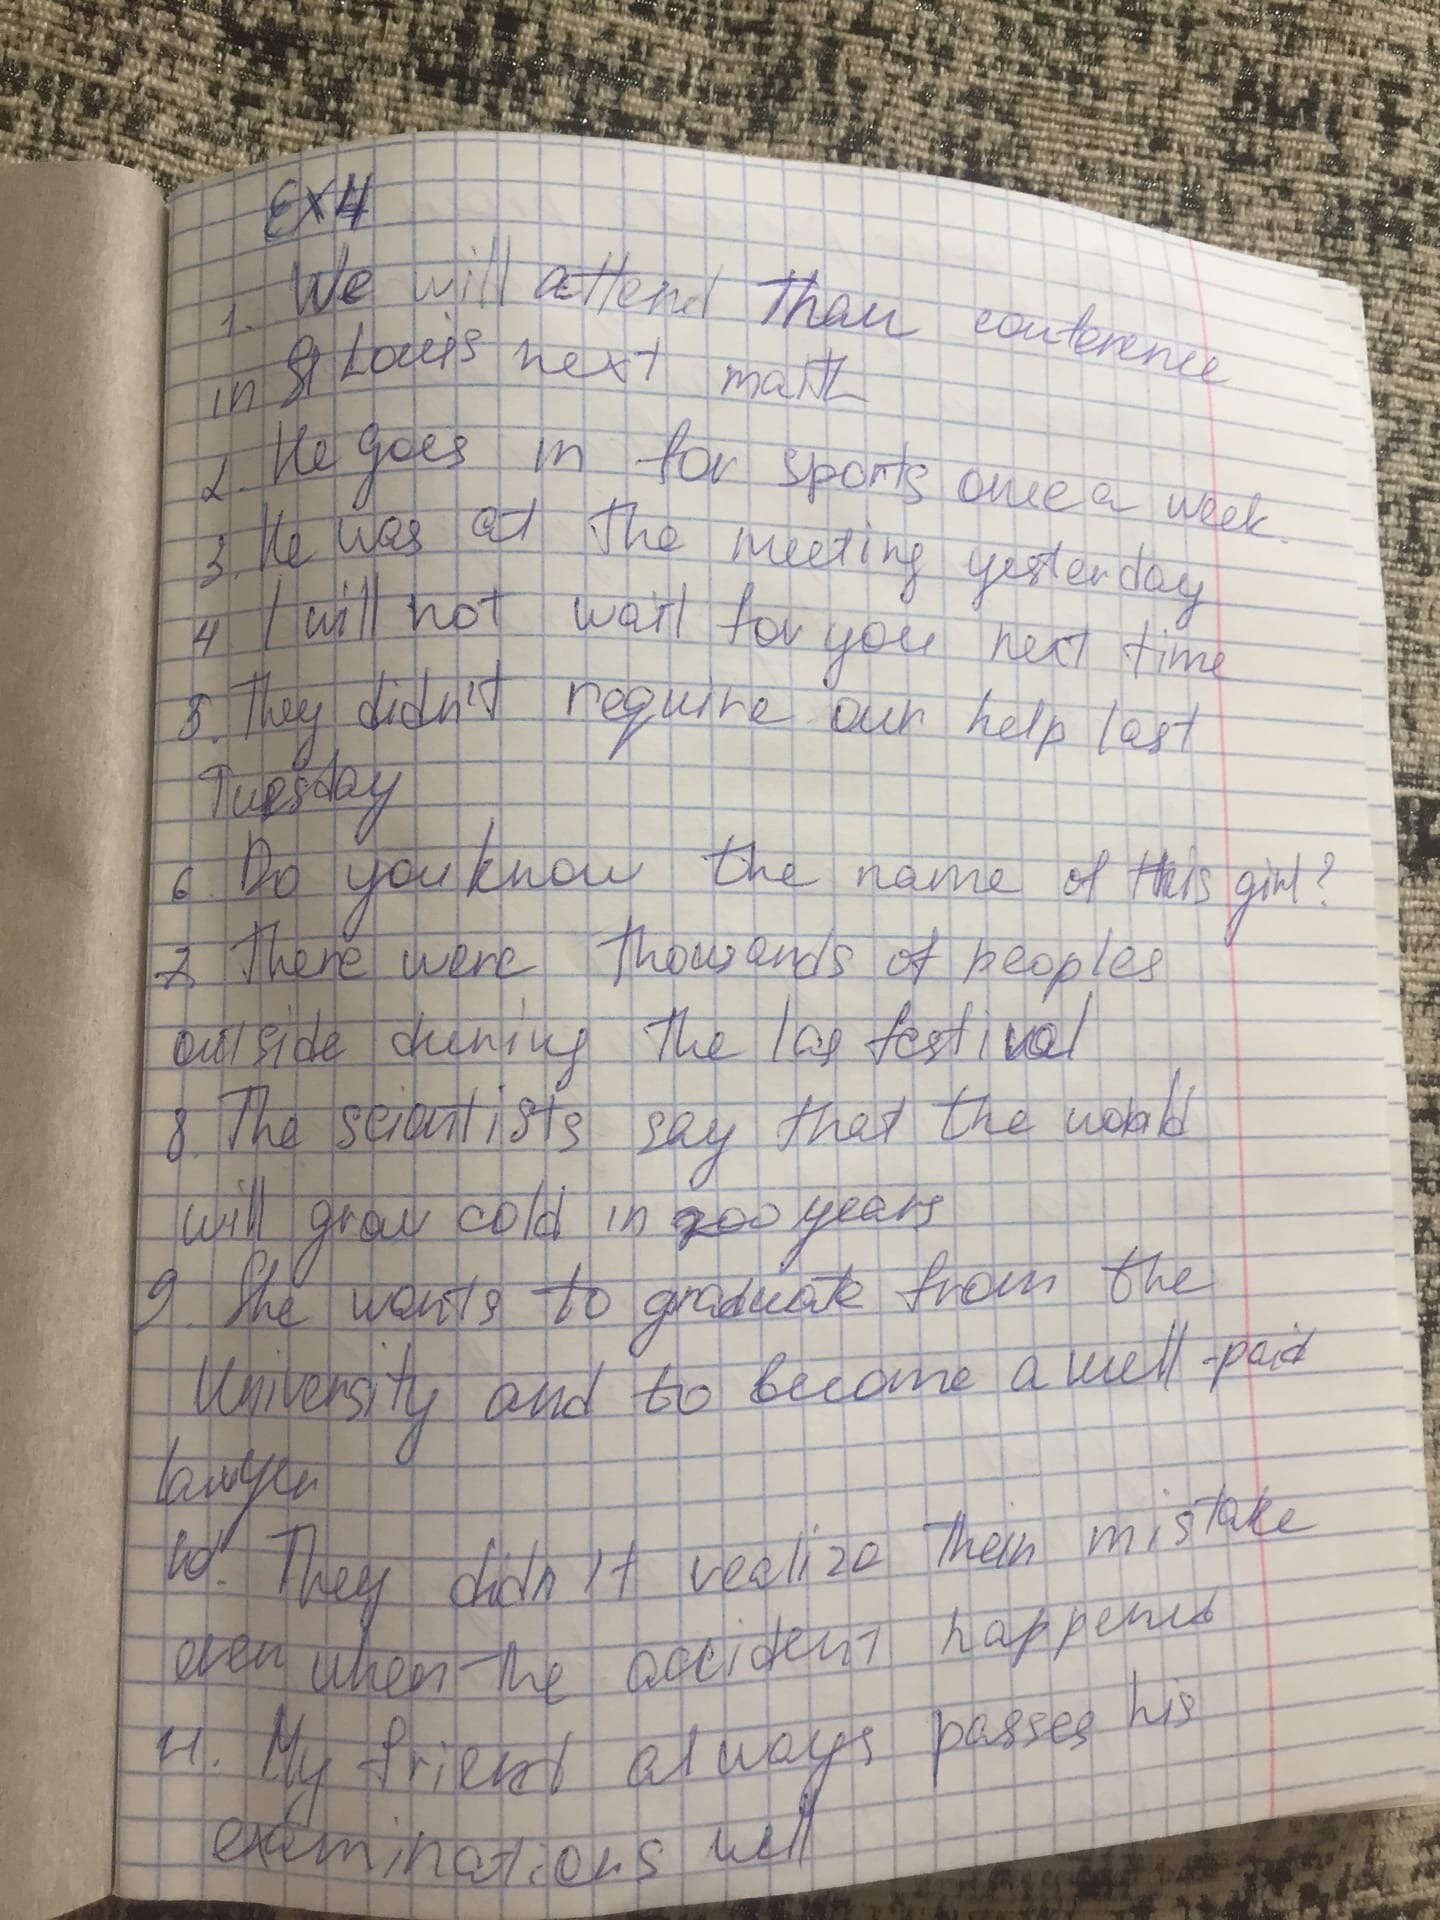 Ex4
1. We will attend than conference
in St Louis next math
2. He goes in for sports once a week.
3. He was at the meeting yesterday
4 I will not wait for you next time
5. They didn't require our help last
Tuesday
6. Do you know the name of this girl?
7. There were thousands of peoples
outside during the las festival
8. The scientists say that the world
will grow cold in 200 years
9. She wants to graduate from the
University and to become a well-paid
lawyer
10. They didn't realize their mistake
even when the accident happened
11. My friend always passes his
examinations well